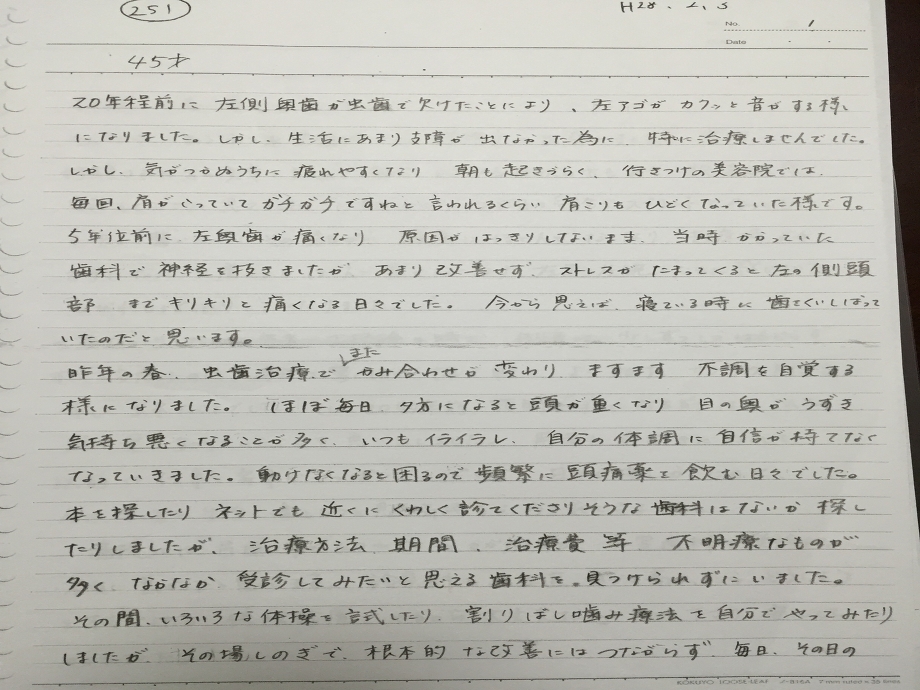 251
H28.2.5
No. 1
Date
45才
20年程前に 左側奥歯が虫歯で欠けたことにより、左アゴが カクッと音がする様
になりました。しかし、生活にあまり支障が 出なかった為に 特に治療しませんでした。
しかし、気がつかぬうちに 疲れやすくなり 朝も起きづらく、行きつけの美容院では
毎回、肩がこっていて ガチガチですねと言われるくらい 肩こりも ひどくなっていた様です。
5年位前に 左奥歯が痛くなり 原因が はっきりしないまま、当時 かかっていた
歯科で 神経を抜きましたが あまり改善せず、ストレスが たまってくると左の側頭
部 まで キリキリと痛くなる日々でした。今から 思えば、寝ている時に歯をくいしばって
いたのだと思います。
昨年の春、虫歯治療で また かみ合わせが変わり ますます 不調を自覚する
様になりました。ほぼ毎日 夕方になると頭が重くなり 目の奥が うずき
気持ち悪くなることが多く、いつもイライラし、自分の体調に自信が持てなく
なっていきました。動けなくなると困るので頻繁に頭痛薬を飲む日々でした。
本を探したり ネットでも近くに くわしく診てくださりそうな歯科はないか探し
たりしましたが、治療方法 期間、治療費等 不明療なものが
多く なかなか 受診してみたいと思える歯科を見つけられずにいました。
その間、いろいろな体操を試したり、割りばし噛み療法を自分でやってみたり
しましたが その場しのぎで、根本的な改善にはつながらず、毎日、その日の
KOKUYO LOOSE-LEAF ノ-816A 7 mm ruled x 35 lines